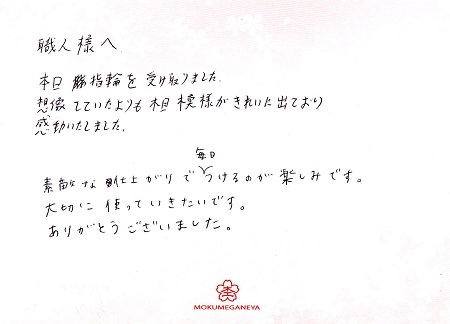 職人様へ
本日 指輪を受け取りました。
想像していたよりも木目模様がきれいに出ており
感動いたしました。
素敵な仕上がりで毎日つけるのが楽しみです。
大切に使っていきたいです。
ありがとうございました。
MOKUMEGANEYA